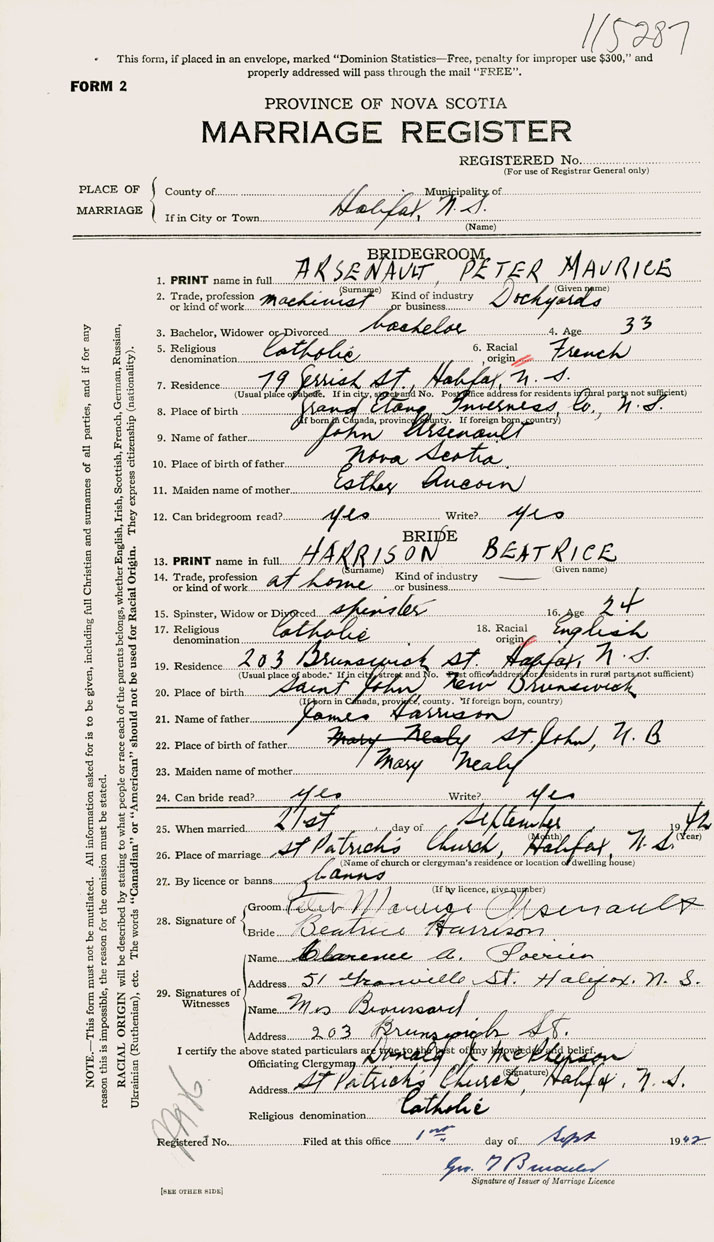 115287
This form, if placed in an envelope, marked "Dominion Statistics—Free, penalty for improper use $300," and
properly addressed will pass through the mail "FREE".
FORM 2
PROVINCE OF NOVA SCOTIA
MARRIAGE REGISTER
REGISTERED No.
(For use of Registrar General only)
PLACE OF MARRIAGE
County of Municipality of
If in City or Town Halifax, N.S.
(Name)
BRIDEGROOM
1. PRINT name in full ARSENAULT, PETER MAURICE
(Surname) (Given name)
2. Trade, profession or kind of work machinist Kind of industry or business Dockyards
3. Bachelor, Widower or Divorced bachelor 4. Age 33
5. Religious denomination Catholic 6. Racial origin French
7. Residence 79 Gerrish St., Halifax, N.S.
(Usual place of abode. If in city, street and No. Post office address for residents in rural parts not sufficient)
8. Place of birth Grand Etang Inverness, Co., N.S.
(If born in Canada, province, county. If foreign born, country)
9. Name of father John Arsenault
10. Place of birth of father Nova Scotia
11. Maiden name of mother Esther Aucoin
12. Can bridegroom read? yes Write? yes
BRIDE
13. PRINT name in full HARRISON BEATRICE
(Surname) (Given name)
14. Trade, profession or kind of work at home Kind of industry or business —
15. Spinster, Widow or Divorced spinster 16. Age 24
17. Religious denomination Catholic 18. Racial origin English
19. Residence 203 Brunswick St. Halifax, N.S.
(Usual place of abode." If in city, street and No. Post office address for residents in rural parts not sufficient)
20. Place of birth Saint John, New Brunswick
(If born in Canada, province, county. "If foreign born, country)
21. Name of father James Harrison
22. Place of birth of father Mary Nealy St. John, N.B
23. Maiden name of mother Mary Nealy
24. Can bride read? yes Write? yes
25. When married 21st day of September 1942
(Month) (Year)
26. Place of marriage St Patrick's Church, Halifax, N.S.
(Name of church or clergyman's residence or location of dwelling house)
27. By licence or banns banns
(If by licence, give number)
28. Signature of
Groom Peter Maurice Arsenault
Bride Beatrice Harrison
29. Signatures of Witnesses
Name Clarence A. Poirier
Address 51 Granville St. Halifax. N.S.
Name Mrs Broussard
Address 203 Brunswick St.
I certify the above stated particulars are true to the best of my knowledge and belief.
Officiating Clergyman Donald R McPherson
(Signature)
Address St Patrick's Church, Halifax, N.S.
Religious denomination Catholic
Registered No. Filed at this office 1st day of Sept 1942
Signature of Issuer of Marriage Licence
[SEE OTHER SIDE]
NOTE.—This form must not be mutilated. All information asked for is to be given, including full Christian and surnames of all parties, and if for any
reason this is impossible, the reason for the omission must be stated.
RACIAL ORIGIN will be described by stating to what people or race each of the parents belongs, whether English, Irish, Scottish, French, German, Russian,
Ukrainian (Ruthenian), etc. The words "Canadian" or "American" should not be used for Racial Origin. They express citizenship (nationality).